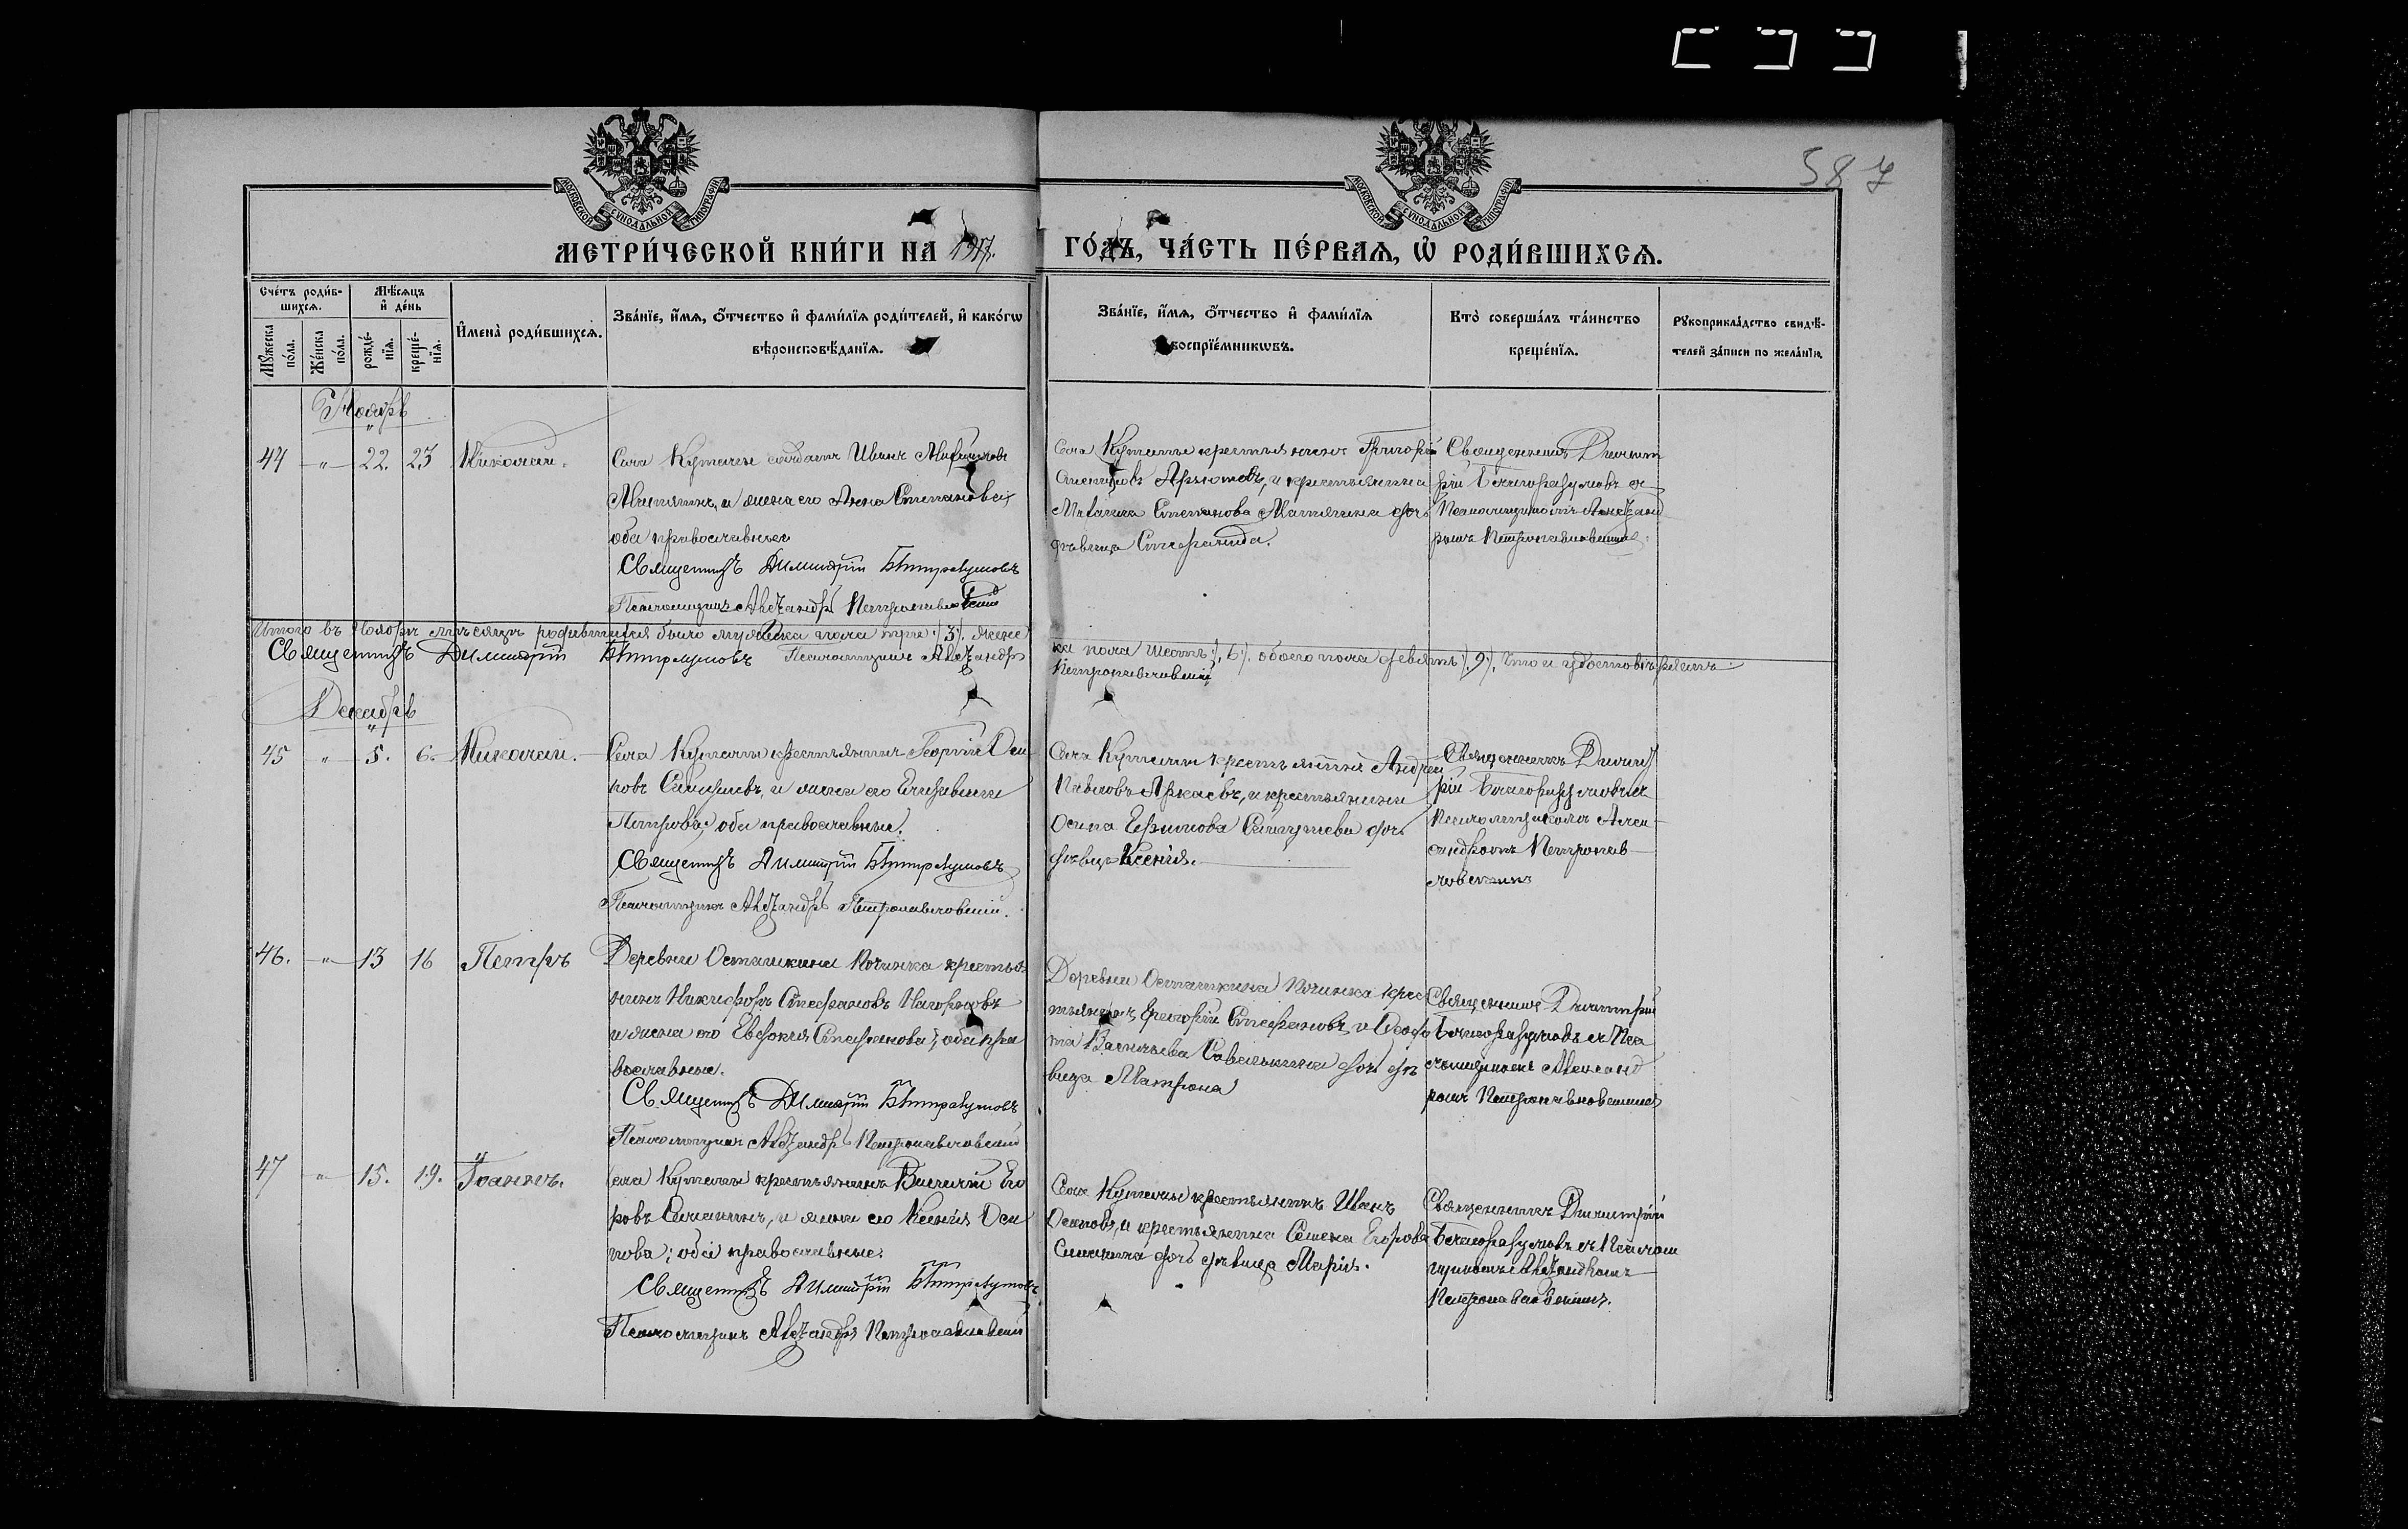 587
МОСКОВСКОЙ СУНОДАЛЬНОЙ ТИПОГРАФІИ
МОСКОВСКОЙ СУНОДАЛЬНОЙ ТИПОГРАФІИ
МЕТРИ́ЧЕСКОЙ КНИ́ГИ НА 1917. ГО́ДЪ, ЧА́СТЬ ПЕ́РВАѦ, Ѽ РОДИ́ВШИХСѦ.
Сче́тъ роди́в-
шихсѧ.
Мꙋ́жеска по́ла.
Же́нска по́ла.
Мѣ́сѧцъ
и҆ де́нь
рожде́-
нїѧ.
креще́-
нїѧ.
И҆мена̀ роди́вшихсѧ.
Зва́нїе, и҆́мѧ, ѻ҆́тчество и҆ фами́лїѧ роди́телей, и҆ како́гѡ
вѣроисповѣ́данїѧ.
Зва́нїе, и҆́мѧ, ѻ҆́тчество и҆ фами́лїѧ
воспрїе́мникѡвъ.
Кто̀ соверша́лъ та́инство
креще́нїѧ.
Рꙋкоприкла́дство свидѣ́-
телей за́писи по жела́нїю.
Ноябрь
44 " 22. 23 Николай.
Села солдатъ Иванъ
и жена его Анна Степанова,
оба православные
Священникъ Димитрій Благоразумовъ
Псаломщикъ Александръ Петропавловскій
Села крестьянинъ Григорій
и крестьянина
Степанова дочь
дѣвица
Священникъ Димит
рій Благоразумовъ съ
Псаломщикомъ Александ
ромъ Петропавловскимъ
Итого въ Ноябрѣ мѣсяцѣ родившихся было мужеска пола три /3/. жене
ка пола шесть /6/. обоего пола девять /9/. что и удостовѣряемъ
Священникъ Димитрій Благоразумовъ Псаломщикъ Александръ
Петропавловскій
Декабрь
45 " 5. 6. Николай.
Села крестьянинъ Георгій Оси
повъ и жена его Елизавета
Петрова; оба православные.
Священникъ Димитрій Благоразумовъ
Псаломщикъ Александръ Петропавловскій.
Села крестьянинъ Андрей
Павловъ и крестьянина
Осипа Ефимова дочь
дѣвица Ксенія.
Священникъ Димит
рій Благоразумовъ съ
Псаломщикомъ Алек
сандромъ Петропав
ловскимъ
46. " 13 16 Петръ
Деревни Осташкина Починка крестья
нинъ Никифоръ Стефановъ
и жена его Евдокія Стефанова; оба пра
вославные.
Священникъ Димитрій Благоразумовъ
Псаломщикъ Александръ Петропавловскій
Деревни Осташкина Починка крес
тьянинъ Григорій Стефановъ
Васильева дочь дѣ
вица Матрона
Священникъ Димитрій
Благоразумовъ съ Пса
ломщикомъ Александ
ромъ Петропавловскимъ
47 " 15. 19. Іоаннъ.
Села крестьянинъ Василій Его
ровъ и жена его Ксенія Оси
пова; оба православные.
Священникъ Димитрій Благоразумовъ
Псаломщикъ Александръ Петропавловскій
Села крестьянинъ Иванъ
Осиповъ, и крестьянина Семена Егорова
дочь дѣвица Марія.
Священникъ Димитрій
Благоразумовъ съ Псалом
щикомъ Александромъ
Петропавловскимъ.